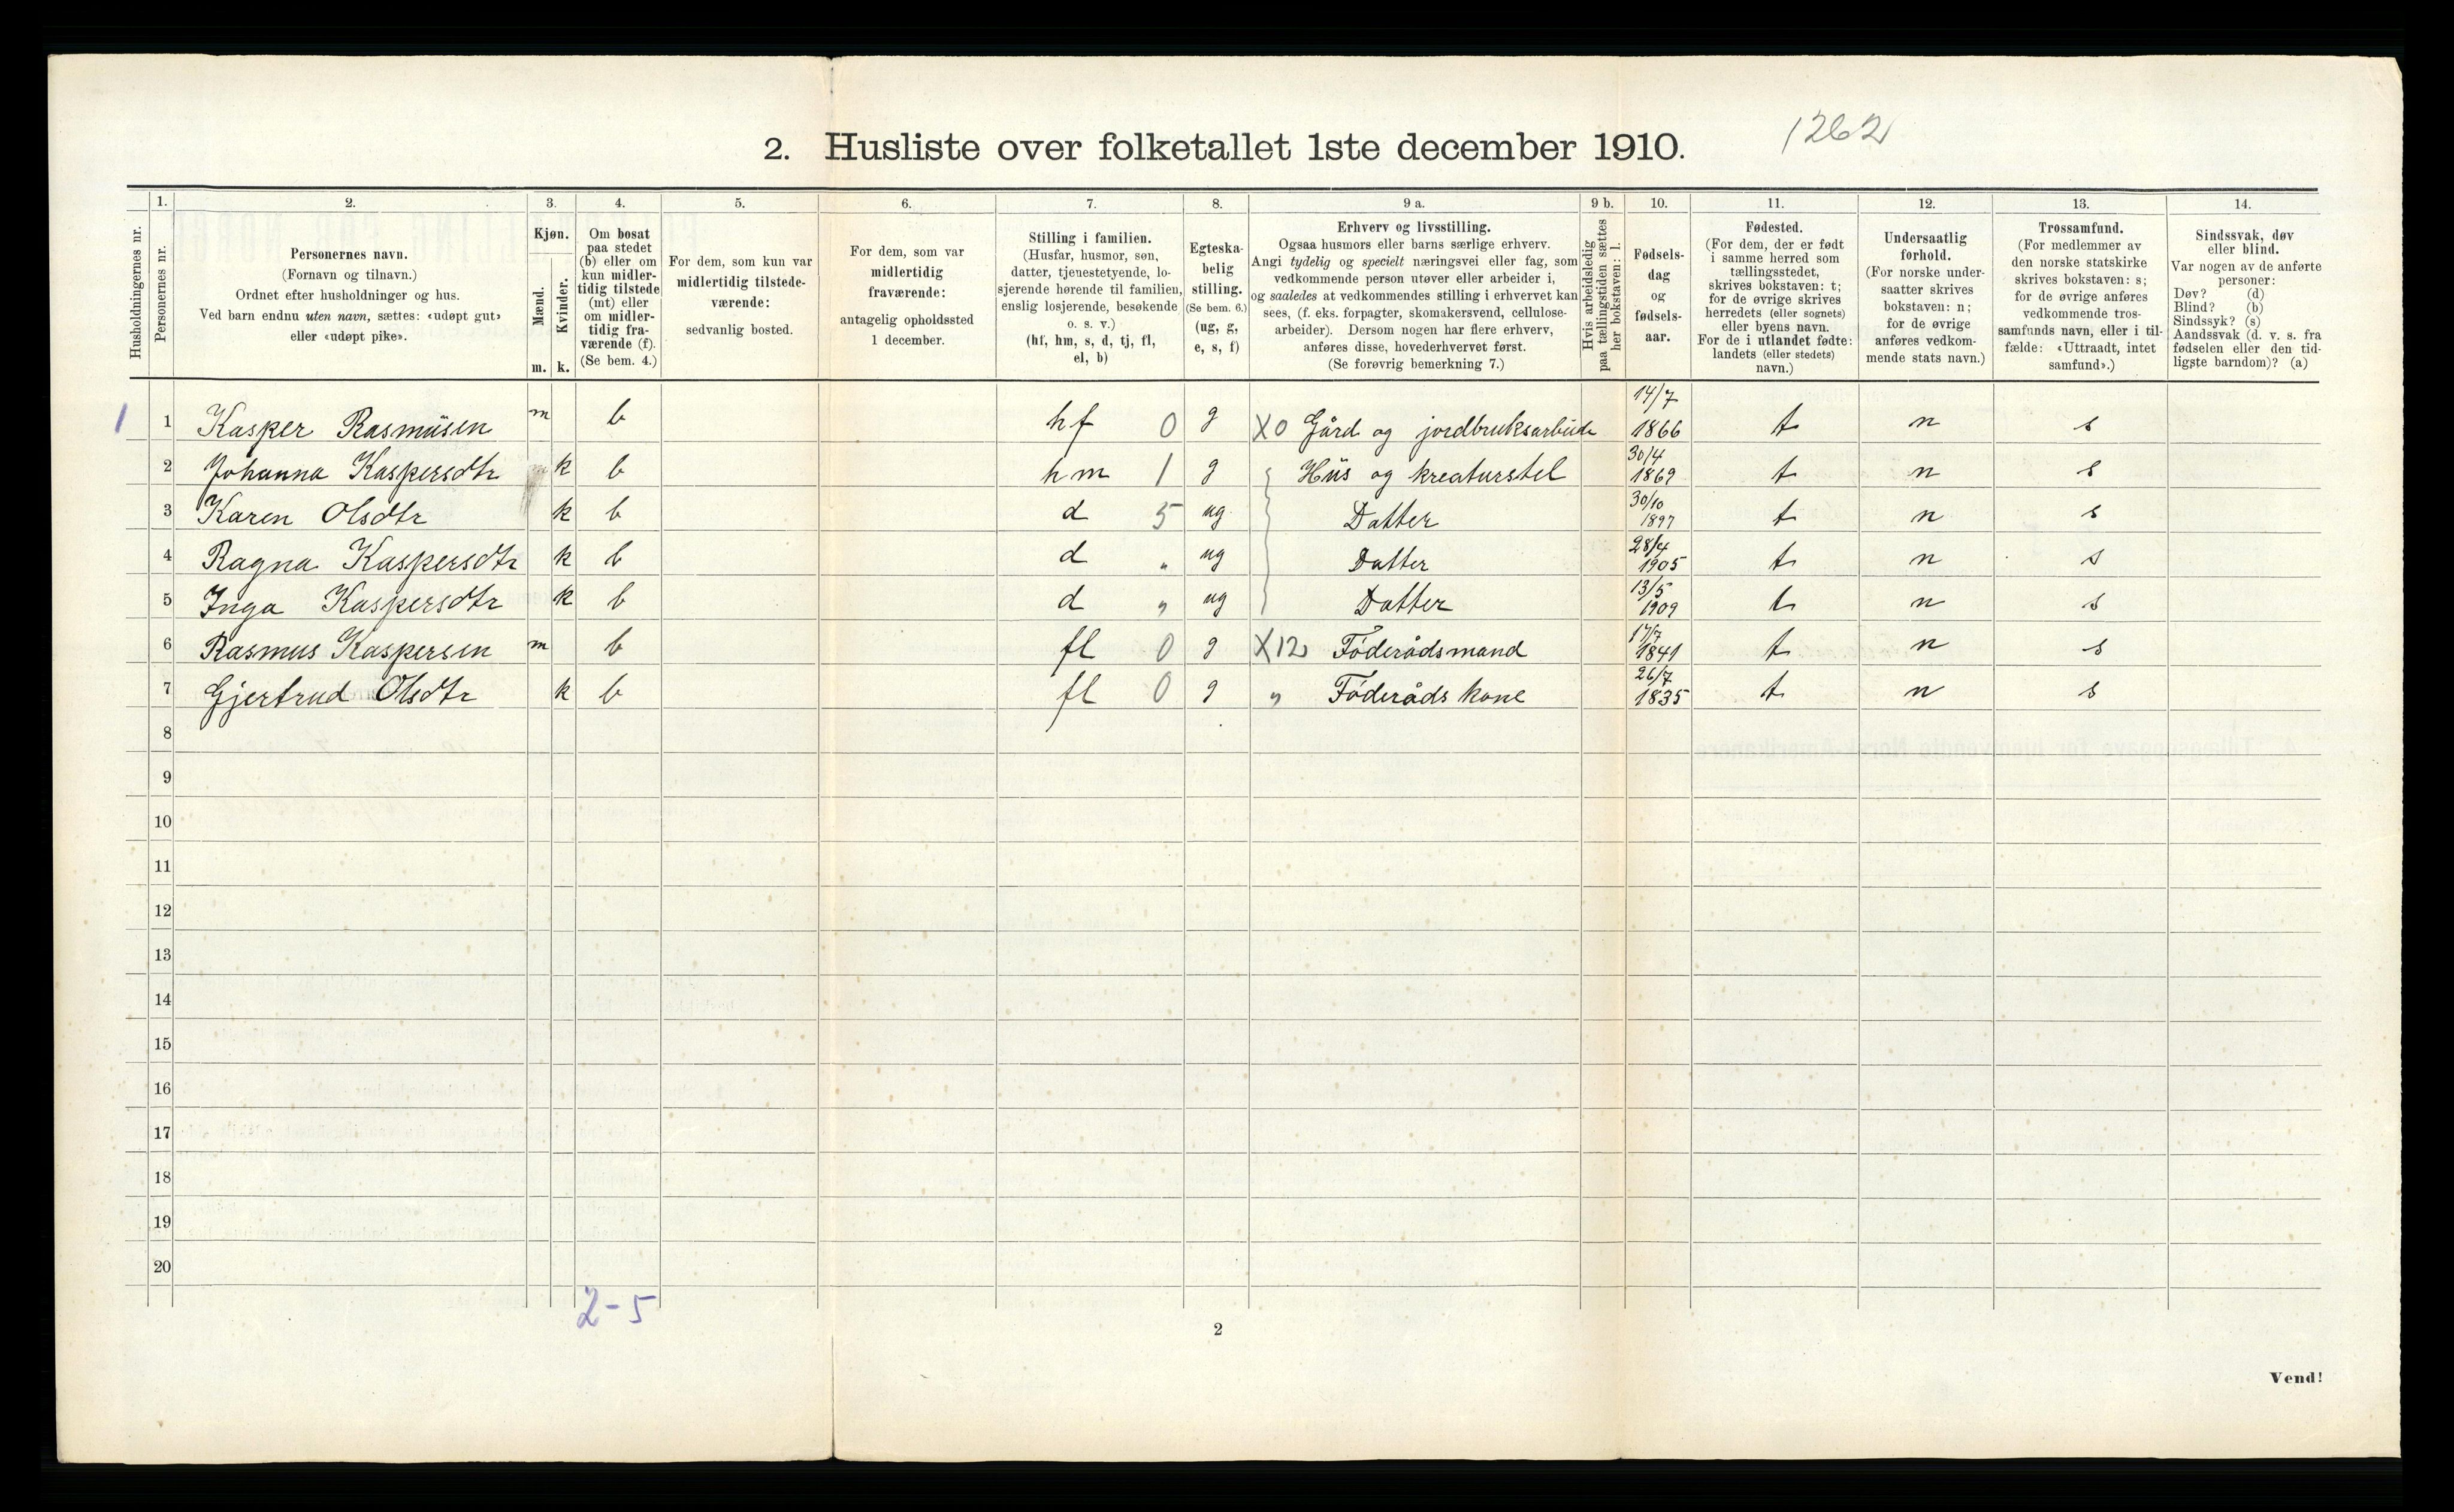 2. Husliste over folketallet 1ste december 1910.
1262
Husholdningernes nr.
1.
Personernes nr.
2.
Personernes navn.
(Fornavn og tilnavn.)
Ordnet efter husholdninger og hus.
Ved barn endnu uten navn, sættes: «udøpt gut»
eller «udøpt pike».
3.
Kjøn.
Mænd.
m.
Kvinder.
k.
4.
Om bosat
paa stedet
(b) eller om
kun midler-
tidig tilstede
(mt) eller
om midler-
tidig fra-
værende (f).
(Se bem. 4.)
5.
For dem, som kun var
midlertidig tilstede-
værende:
sedvanlig bosted.
6.
For dem, som var
midlertidig
fraværende:
antagelig opholdssted
1 december.
7.
Stilling i familien.
(Husfar, husmor, søn,
datter, tjenestetyende, lo-
sjerende hørende til familien,
enslig losjerende, besøkende
o. s. v.)
(hf, hm, s, d, tj, fl,
el, b)
8.
Egteska-
belig
stilling.
(Se bem. 6.)
(ug, g,
e, s, f)
9 a.
Erhverv og livsstilling.
Ogsaa husmors eller barns særlige erhverv.
Angi tydelig og specielt næringsvei eller fag, som
vedkommende person utøver eller arbeider i,
og saaledes at vedkommendes stilling i erhvervet kan
sees, (f. eks. forpagter, skomakersvend, cellulose-
arbeider). Dersom nogen har flere erhverv,
anføres disse, hovederhvervet først.
(Se forøvrig bemerkning 7.)
9 b.
Hvis arbeidsledig
paa tællingstiden sættes
her bokstaven: l.
10.
Fødsels-
dag
og
fødsels-
aar.
11.
Fødested.
(For dem, der er født
i samme herred som
tællingsstedet,
skrives bokstaven: t;
for de øvrige skrives
herredets (eller sognets)
eller byens navn.
For de i utlandet fødte:
landets (eller stedets)
navn.)
12.
Undersaatlig
forhold.
(For norske under-
saatter skrives
bokstaven: n;
for de øvrige
anføres vedkom-
mende stats navn.)
13.
Trossamfund.
(For medlemmer av
den norske statskirke
skrives bokstaven: s;
for de øvrige anføres
vedkommende tros-
samfunds navn, eller i til-
fælde: «Uttraadt, intet
samfund».)
14.
Sindssvak, døv
eller blind.
Var nogen av de anførte
personer:
Døv? (d)
Blind? (b)
Sindssyk? (s)
Aandssvak (d. v. s. fra
fødselen eller den tid-
ligste barndom)? (a)
1 1 Kasper Rasmüsen m b hf 0 g X0 Gård og jordbruksarbeide 14/7 1866 t n s
2 Johanna Kaspersdtr k b hm 1 g Hüs og kreaturstel 30/4 1869 t n s
3 Karen Olsdtr k b d 5 ug Datter 30/10 1897 t n s
4 Ragna Kaspersdtr k b d " ug Datter 28/4 1905 t n s
5 Inga Kaspersdtr k b d " ug Datter 13/5 1909 t n s
6 Rasmus Kaspersen m b fl 0 g X12 Föderådsmand 17/7 1841 t n s
7 Gjertrud Olsdtr k b fl 0 g " Föderåds kone 26/7 1835 t n s
8
9
10
11
12
13
14
15
16
17
18
19
20
2-5
2
Vend!